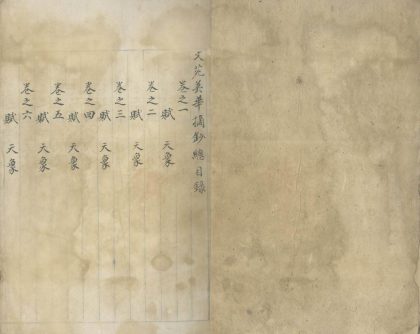 文苑英華摘鈔總目錄
卷之一
賦 天象
卷之二
賦 天象
卷之三
賦 天象
卷之四
賦 天象
卷之五
賦 天象
卷之六
賦 天象